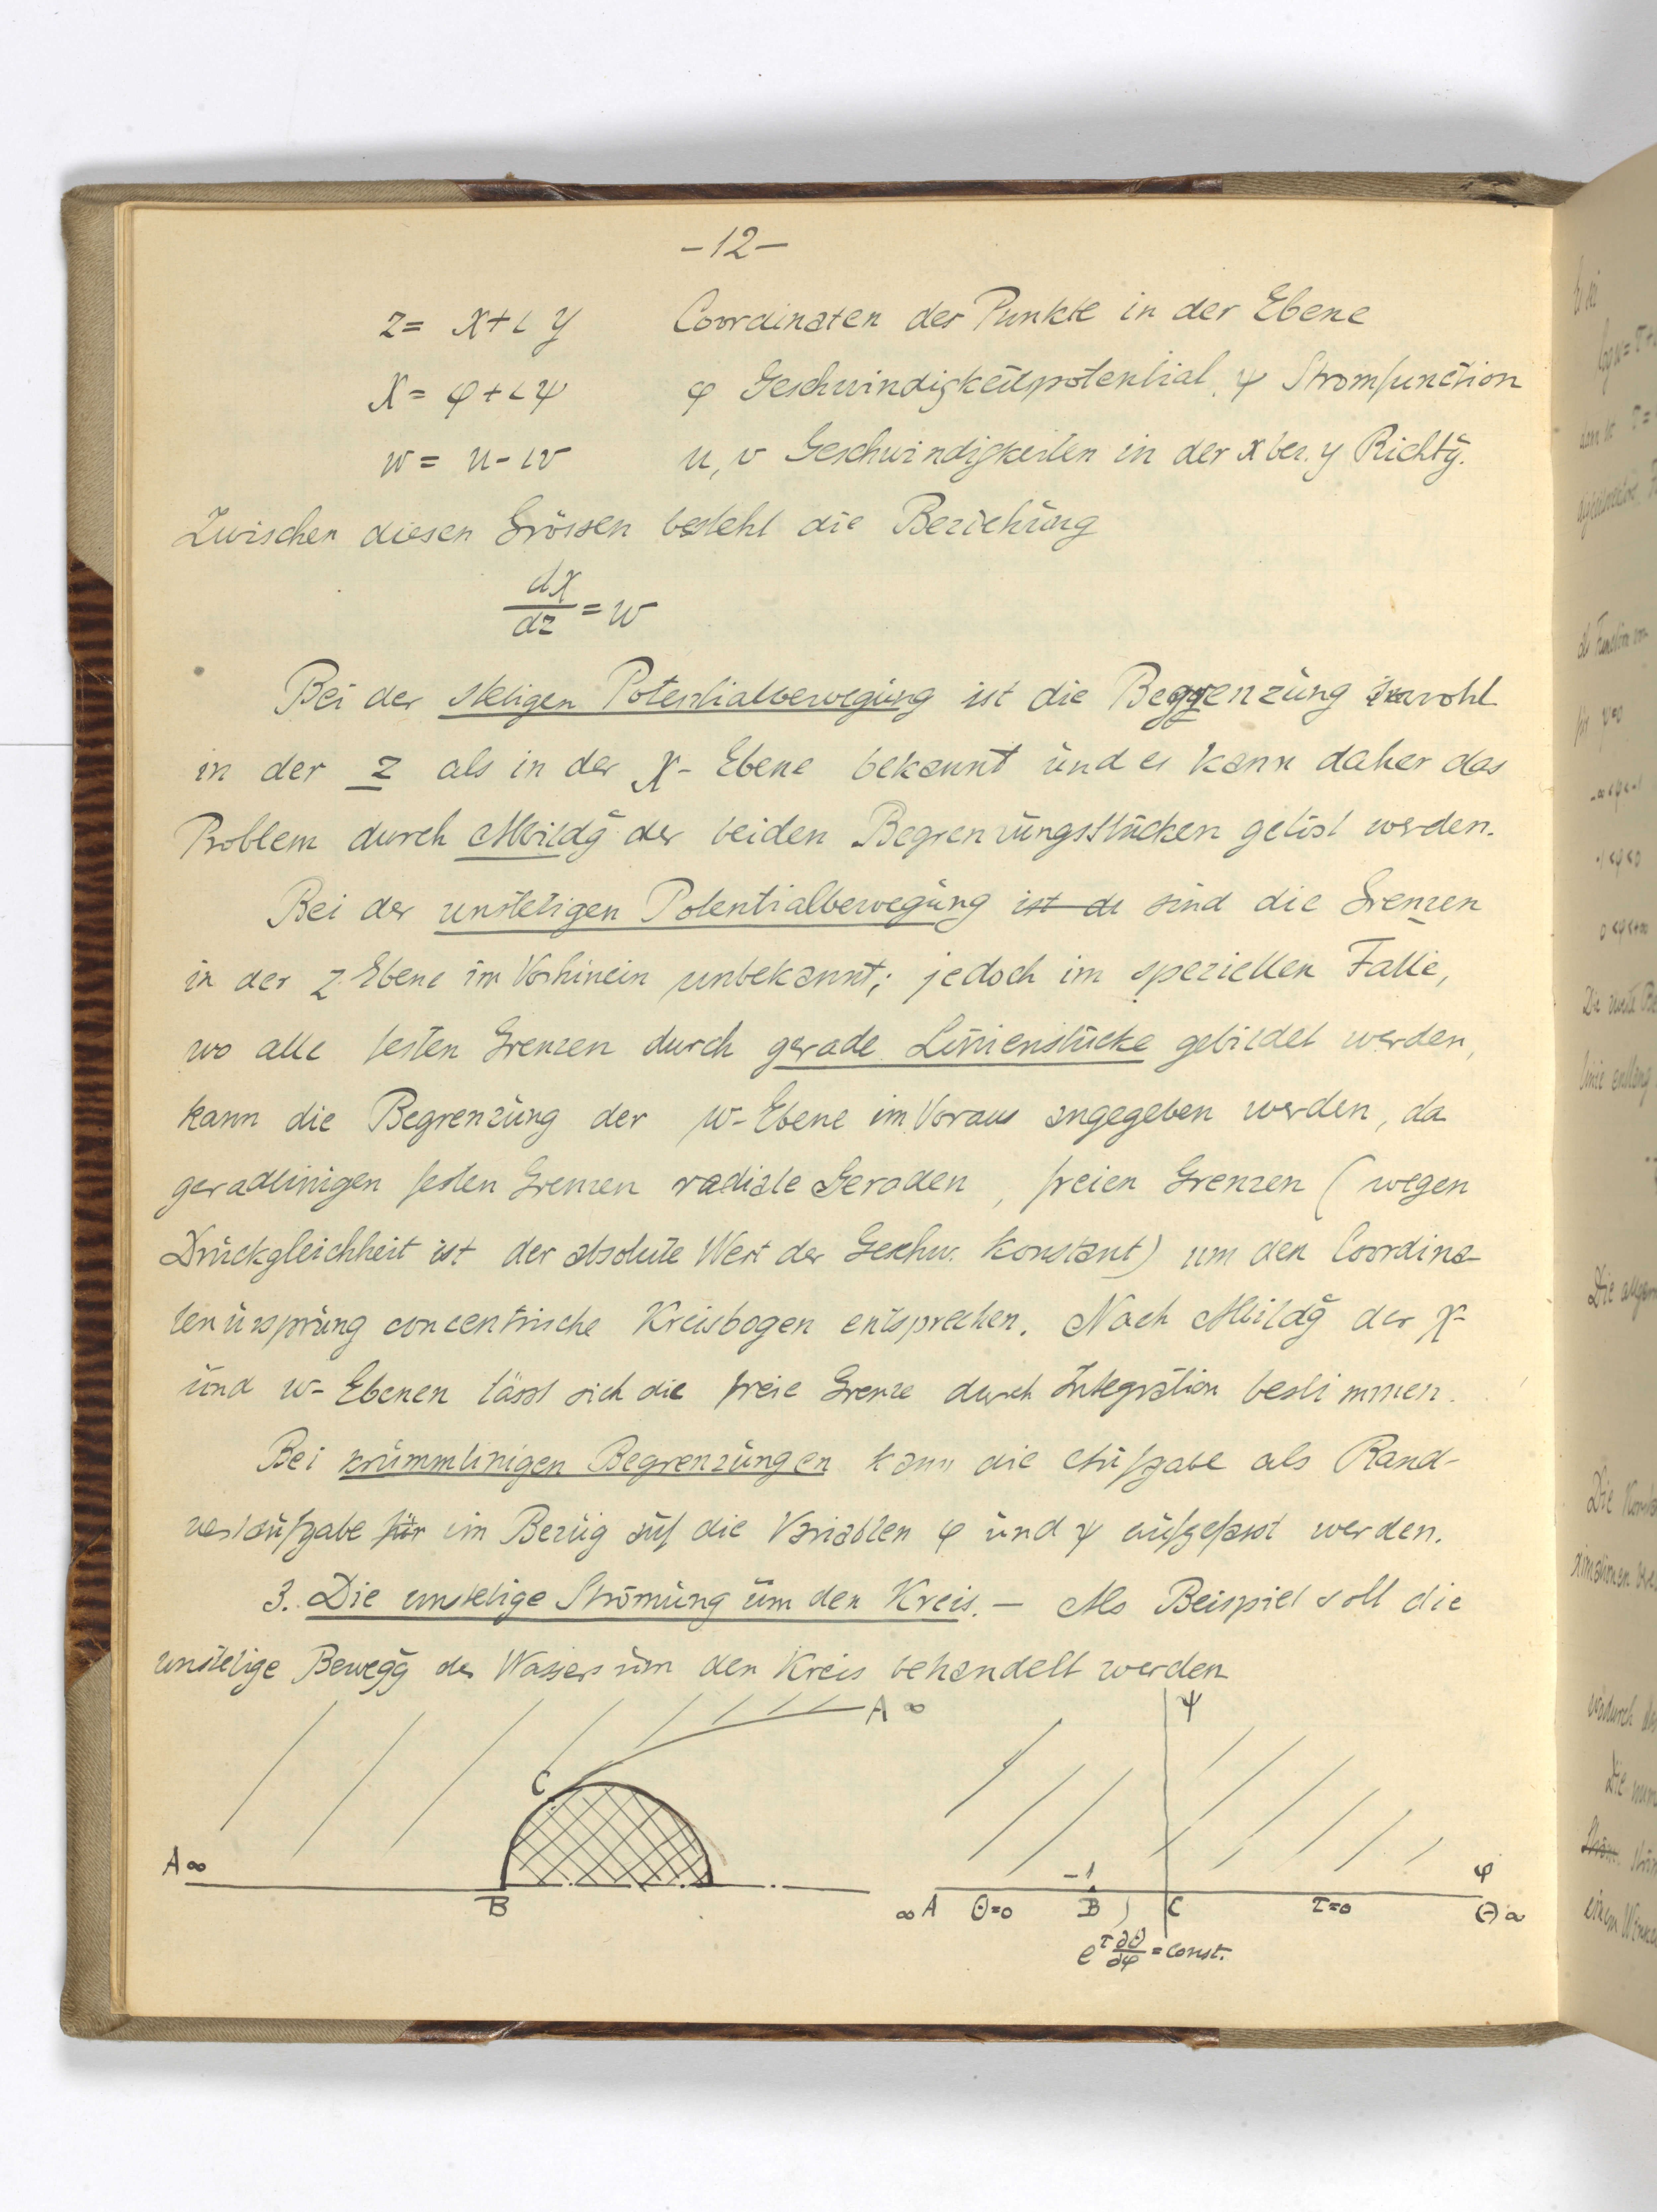 -12-
z = x+iy Coordinaten der Punkte in der Ebene
χ = φ+iψ φ Geschwindigkeitspotential, ψ Stromfunction
w = u-iv u, v Geschwindigkeiten in der x bez. y Richtg.
Zwischen diesen Grössen besteht die Beziehung
dχ/dz = w
Bei der stetigen Potentialbewegung ist die Begrenzung sowohl
in der z als in der χ-Ebene bekannt und es kann daher das
Problem durch Abbildg der beiden Begrenzungsstücken gelöst werden.
Bei der unstetigen Potentialbewegung ist de sind die Grenzen
in der z Ebene im Vorhinein unbekannt; jedoch im speziellen Falle,
wo alle festen Grenzen durch gerade Linienstücke gebildet werden,
kann die Begrenzung der w-Ebene im Voraus angegeben werden, da
geradlinigen festen Grenzen radiale Geraden, freien Grenzen (wegen
Druckgleichheit ist der absolute Wert der Geschw. konstant) um den Coordina-
tenursprung concentrische Kreisbogen entsprechen. Nach Abbildg der χ-
und w-Ebenen lässt sich die freie Grenze durch Integration bestimmen.
Bei krummlinigen Begrenzungen kann die Aufgabe als Rand-
wertaufgabe für im Bezug auf die Variablen φ und ψ aufgefasst werden.
3. Die unstetige Strömung um den Kreis. — Als Beispiel soll die
unstetige Bewegg des Wassers um den Kreis behandelt werden
A ∞ ψ
C
A ∞ -1 φ
B ∞ A Θ=0 B C τ=0 ∞
e^τ ∂Θ/∂φ = const.